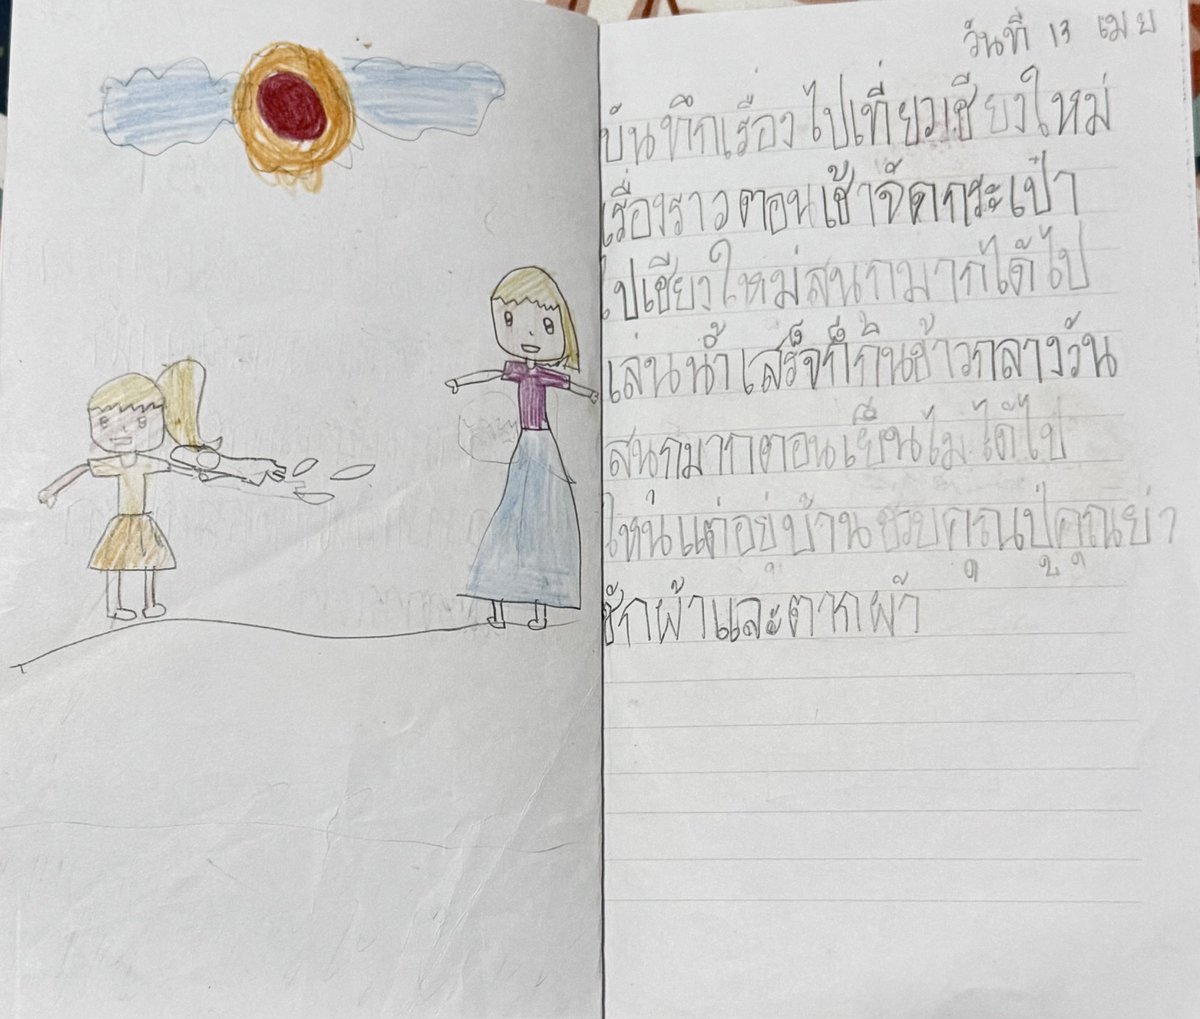 วันที่ 13 เมย
บันทึกเรื่องไปเที่ยวเชียงใหม่
เรื่องราวตอนเช้าจัดกระเป๋า
ไปเชียงใหม่สนุกมากได้ไป
เล่นน้ำเสร็จก็กินข้าวกลางวัน
สนุกมากตอนเย็นไม่ได้ไป
ไหนแต่อยู่บ้านช่วยคุณปู่คุณย่า
ซักผ้าและตากผ้า